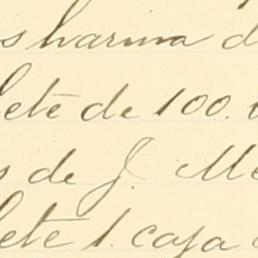 s harina d
lete de 100.
s de J. Me
lete 1. caja